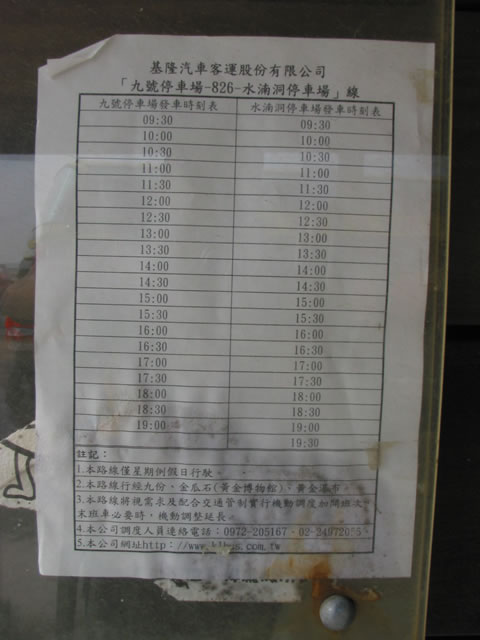 基隆汽車客運股份有限公司
「九號停車場-826-水湳洞停車場」線
九號停車場發車時刻表 水湳洞停車場發車時刻表
09:30 09:30
10:00 10:00
10:30 10:30
11:00 11:00
11:30 11:30
12:00 12:00
12:30 12:30
13:00 13:00
13:30 13:30
14:00 14:00
14:30 14:30
15:00 15:00
15:30 15:30
16:00 16:00
16:30 16:30
17:00 17:00
17:30 17:30
18:00 18:00
18:30 18:30
19:00 19:00
19:30
註記：
1.本路線僅星期例假日行駛。
2.本路線行經九份、金瓜石(黃金博物館)、黃金瀑布。
3.本路線將視需求及配合交通管制實行機動調度加開班次
末班車必要時，機動調整延長。
4.本公司調度人員連絡電話：0972-205167、02-24972055。
5.本公司網址http：//www.klbus.com.tw